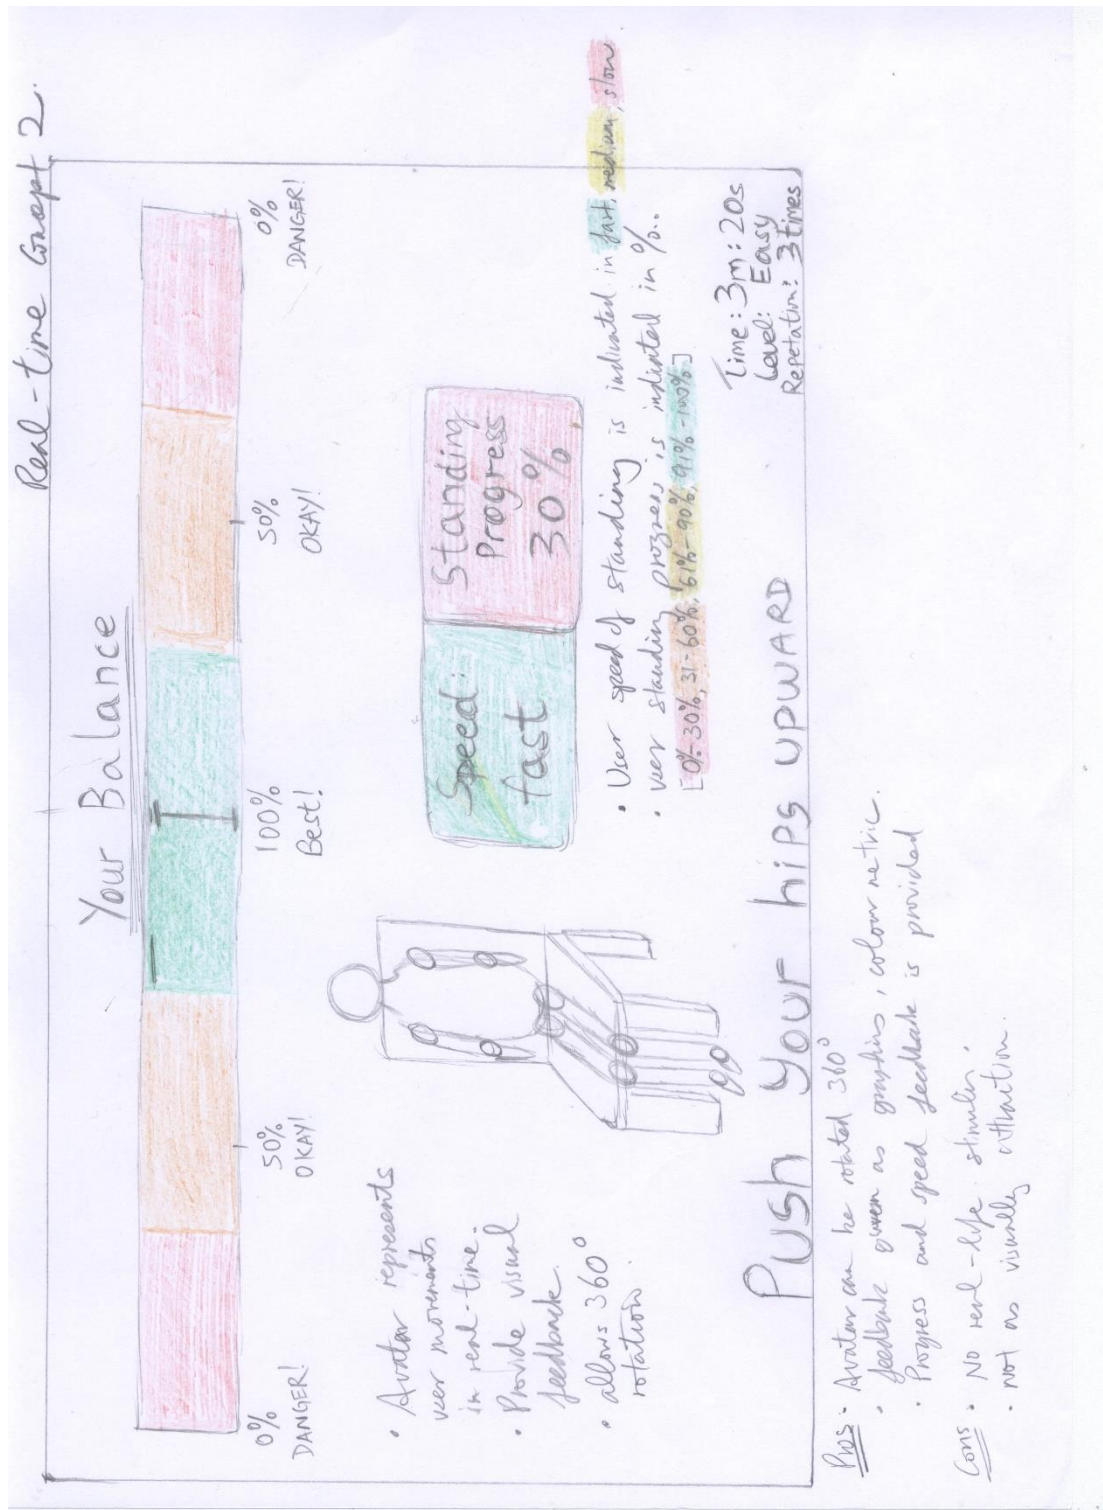 Real-time Concept 2.
Your Balance
0%
DANGER!
50%
OKAY!
100%
Best!
50%
OKAY!
0%
DANGER!
• Avatar represents
user movements
in real-time.
• Provide visual
feedback.
• allows 360°
rotation.
Speed:
fast
Standing
Progress
30%
• User speed of standing is indicated in fast, medium, slow.
• user standing progress is indicated in %..
[0%-30%, 31-60%, 61%-90%, 91%-100%]
Push your hips UPWARD
Time: 3m: 20s
Level: Easy
Repetation: 3 times
Pros • Avatar can be rotated 360°
• feedback given as graphics, colour metric.
• Progress and speed feedback is provided
Cons • No real-life stimuli.
• not as visually attraction.